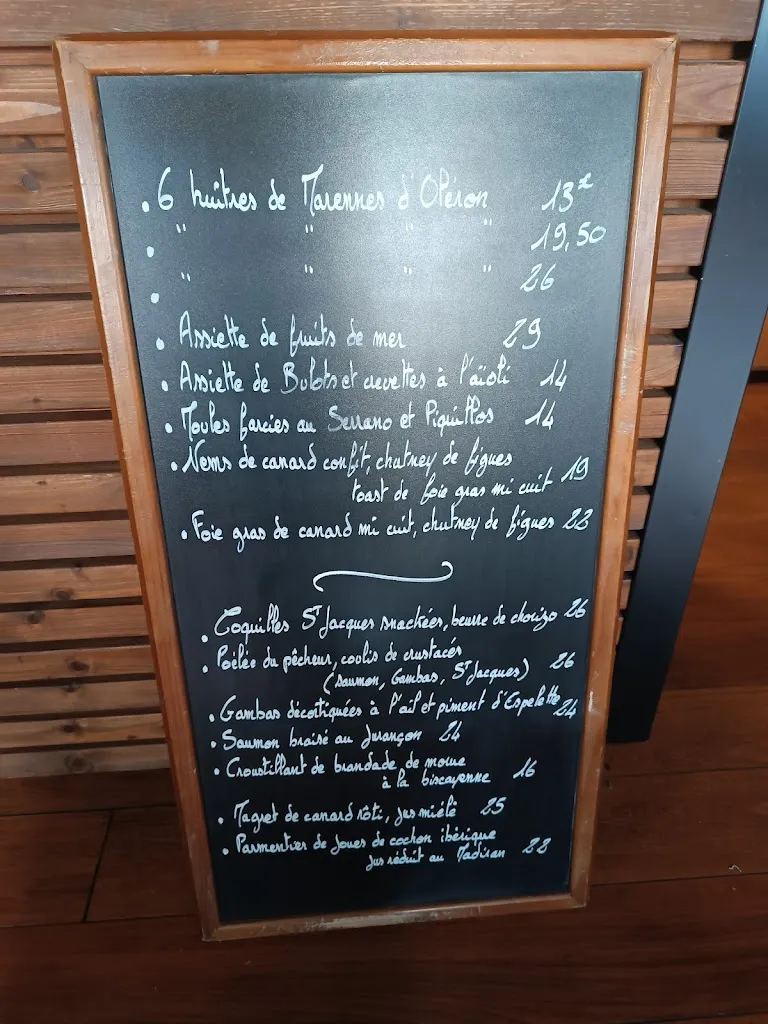 . 6 huîtres de Marennes d'Oléron 13€
. " " " " 19,50
. " " " " 26
. Assiette de fruits de mer 29
. Assiette de Bulots et crevettes à l'aïoli 14
. Moules farcies au Serrano et Piquillos 14
. Nems de canard confit, chutney de figues
toast de foie gras mi cuit 19
. Foie gras de canard mi cuit, chutney de figues 22
. Coquilles St Jacques snackées, beurre de chorizo 26
. Poêlée du pêcheur, coulis de crustacés
(saumon, Gambas, St Jacques) 26
. Gambas décortiquées à l'ail et piment d'Espelette 24
. Saumon braisé au Jurançon 24
. Croustillant de brandade de morue
à la biscayenne 16
. Magret de canard rôti, jus miélé 25
. Parmentier de joues de cochon ibérique
jus réduit au Madiran 22